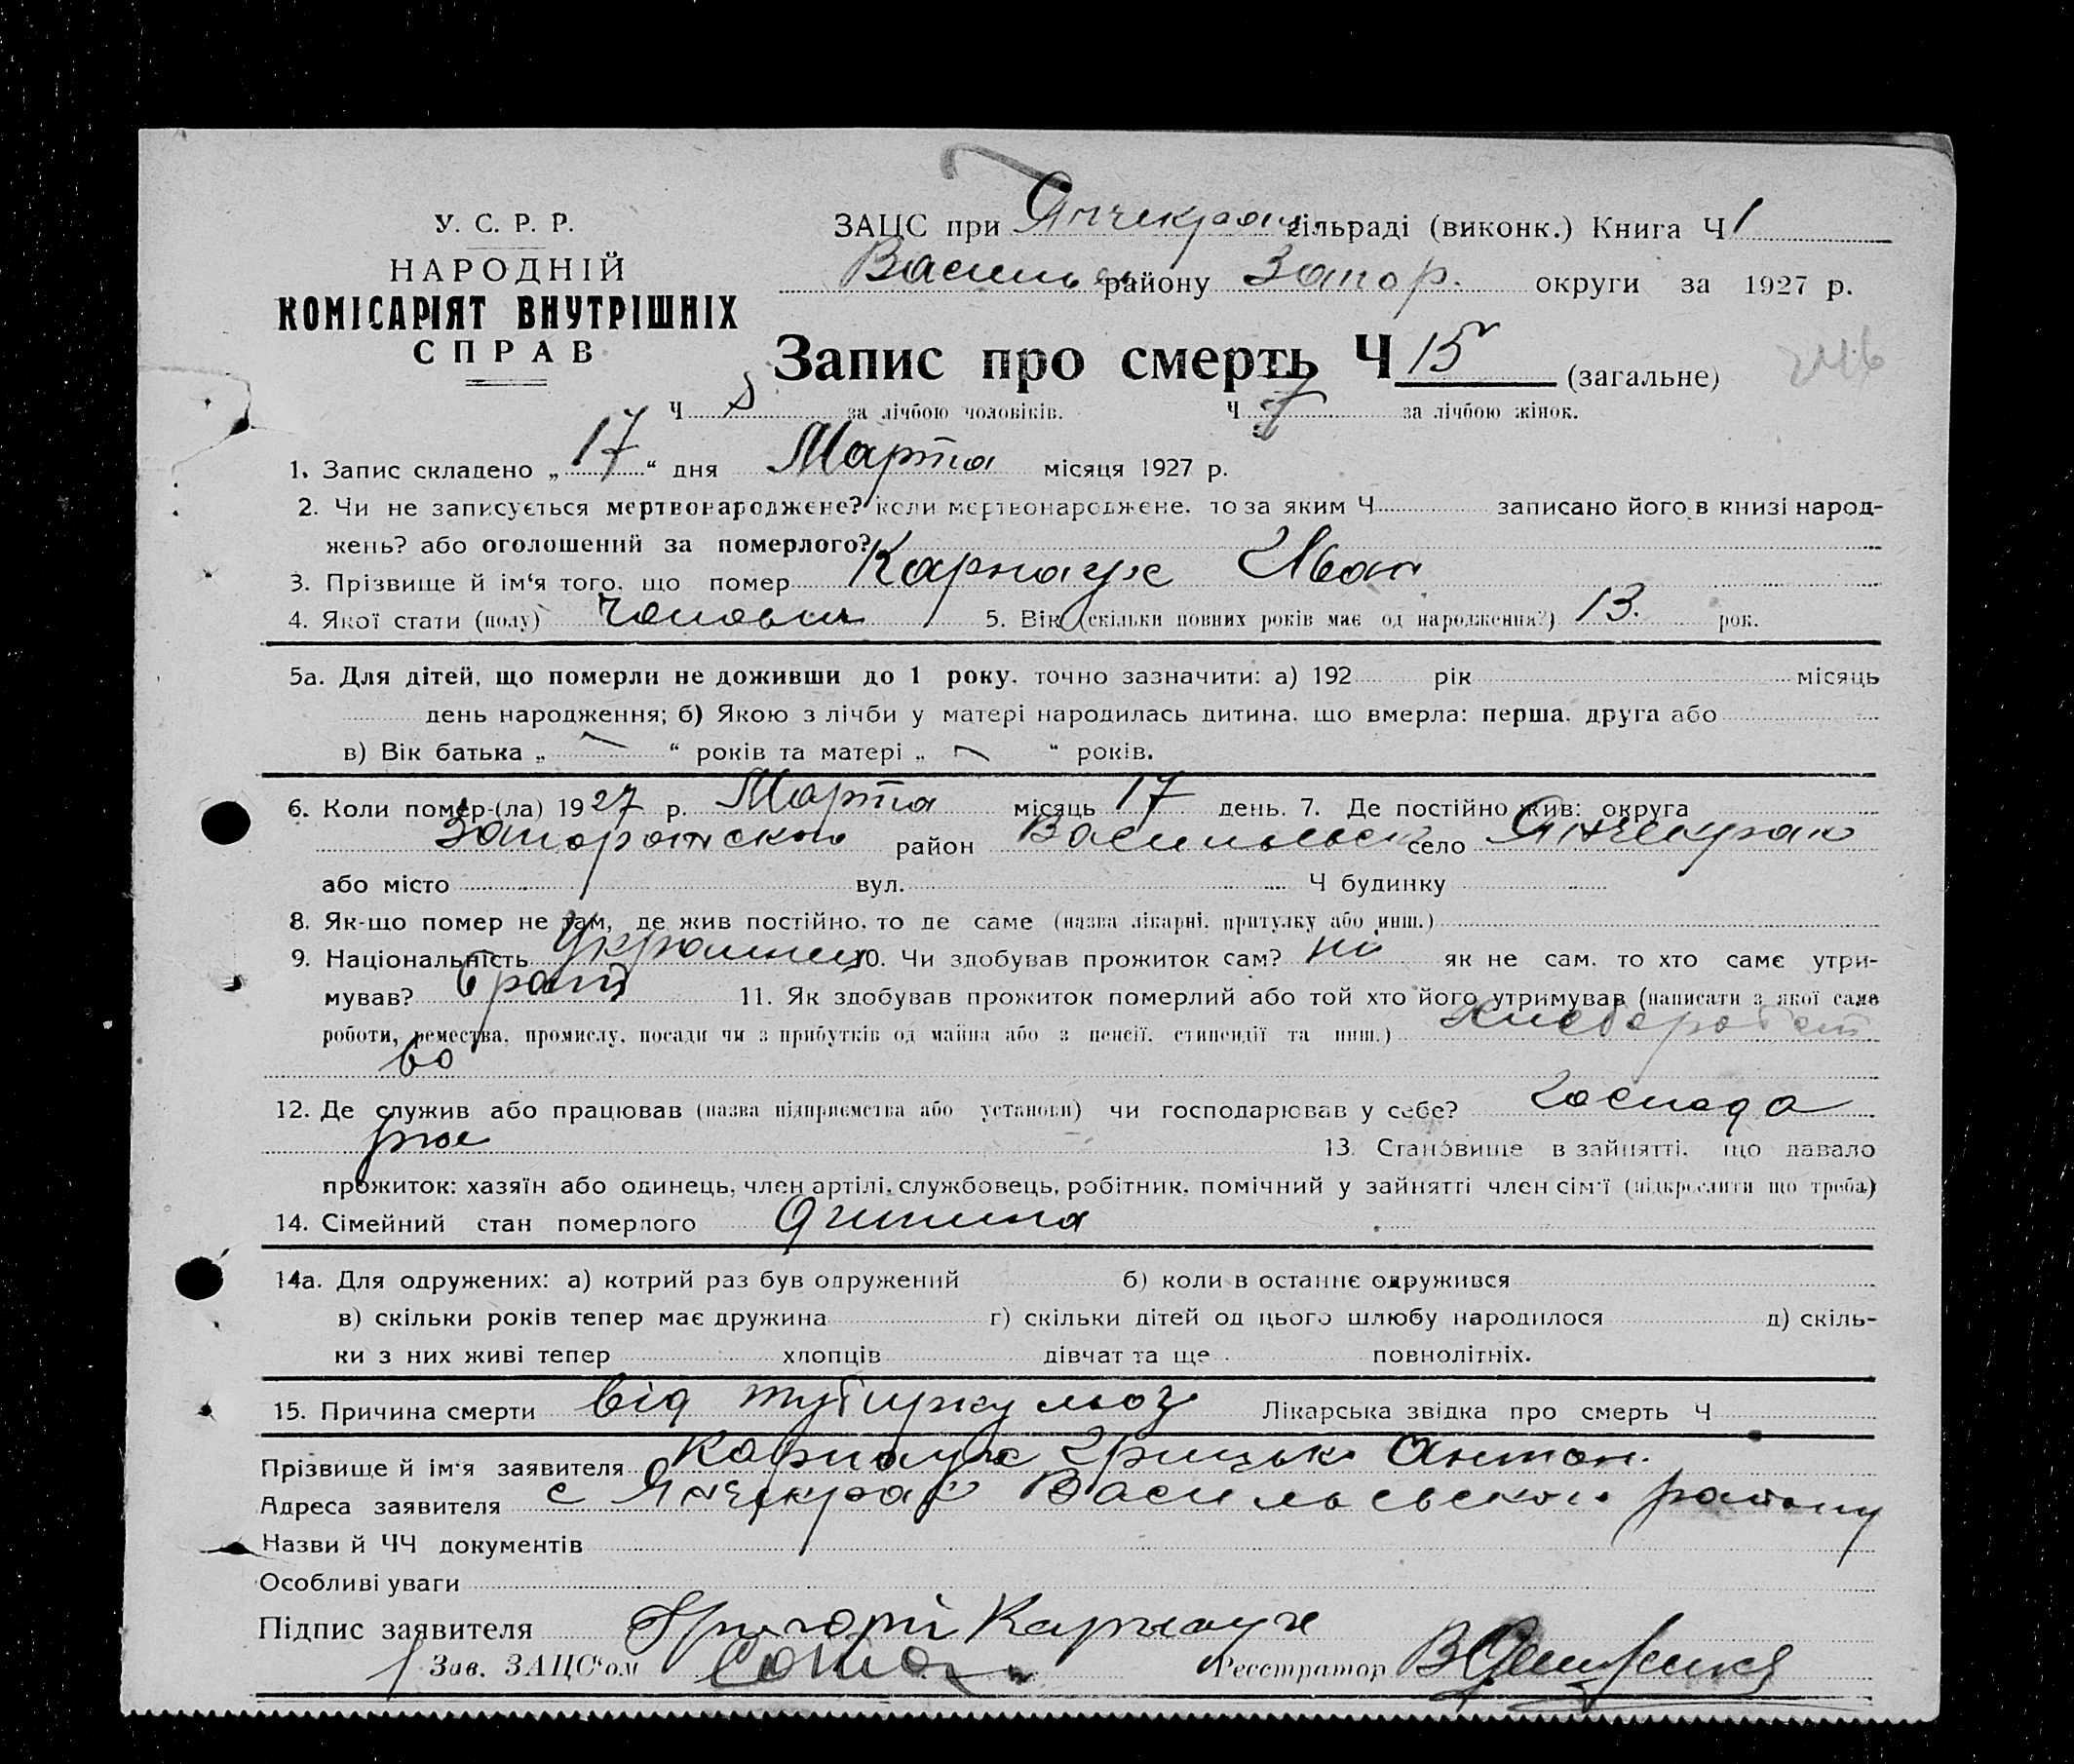 У. С. Р. Р.
НАРОДНІЙ
КОМІСАРІЯТ ВНУТРІШНІХ
СПРАВ
ЗАЦС при Янчекрак. сільраді (виконк.) Книга Ч 1
Василь району Запор. округи за 1927 р.
Запис про смерть Ч 15 (загальне)
Ч 8 за лічбою чоловіків. Ч 7 за лічбою жінок.
1. Запис складено „ 17 “ дня Марта місяця 1927 р.
2. Чи не записується мертвонароджене? коли мертвонароджене, то за яким Ч записано його в книзі народ-
жень? або оголошений за померлого?
3. Прізвище й ім‘я того, що помер Карнаух Иван
4. Якої стати (полу) Чоловичи 5. Вік (скільки повних років має од народження?) 13. рок.
5а. Для дітей, що померли не доживши до 1 року, точно зазначити: а) 192 рік місяць
день народження; б) Якою з лічби у матері народилась дитина, що вмерла: перша, друга або
в) Вік батька „ – “ років та матері „ – “ років.
6. Коли помер-(ла) 1927 р. Марта місяць 17 день. 7. Де постійно жив: округа
Запорожского район Васильевск село Янчекрак
або місто вул. Ч будинку
8. Як-що помер не там, де жив постійно, то де саме (назва лікарні, притулку або инш.)
9. Національність Украинец 10. Чи здобував прожиток сам? ні як не сам, то хто саме утри-
мував? брат 11. Як здобував прожиток померлий або той хто його утримував (написати з якої саме
роботи, ремества, промислу, посади чи з прибутків од майна або з пенсії, стипендії та инш.) хлеборобст
во
12. Де служив або працював (назва підприємства або установи) чи господарював у себе? Господа
рюе
13. Становище в зайнятті, що давало
прожиток: хазяїн або одинець, член артілі, службовець, робітник, помічний у зайнятті член сім‘ї (підкреслити що треба)
14. Сімейний стан померлого дитина
14а. Для одружених: а) котрий раз був одружений б) коли в останнє одружився
в) скільки років тепер має дружина г) скільки дітей од цього шлюбу народилося д) скіль-
ки з них живі тепер хлопців дівчат та ще повнолітніх.
15. Причина смерти від тубиркульоз Лікарська звідка про смерть Ч
Прізвище й ім‘я заявителя Карнаух Грицько Антон.
Адреса заявителя с Янчекрак Васильевского району
Назви й ЧЧ документів
Особливі уваги
Підпис заявителя Григорій Карнаух
Зав. ЗАЦС‘ом
Реєстратор